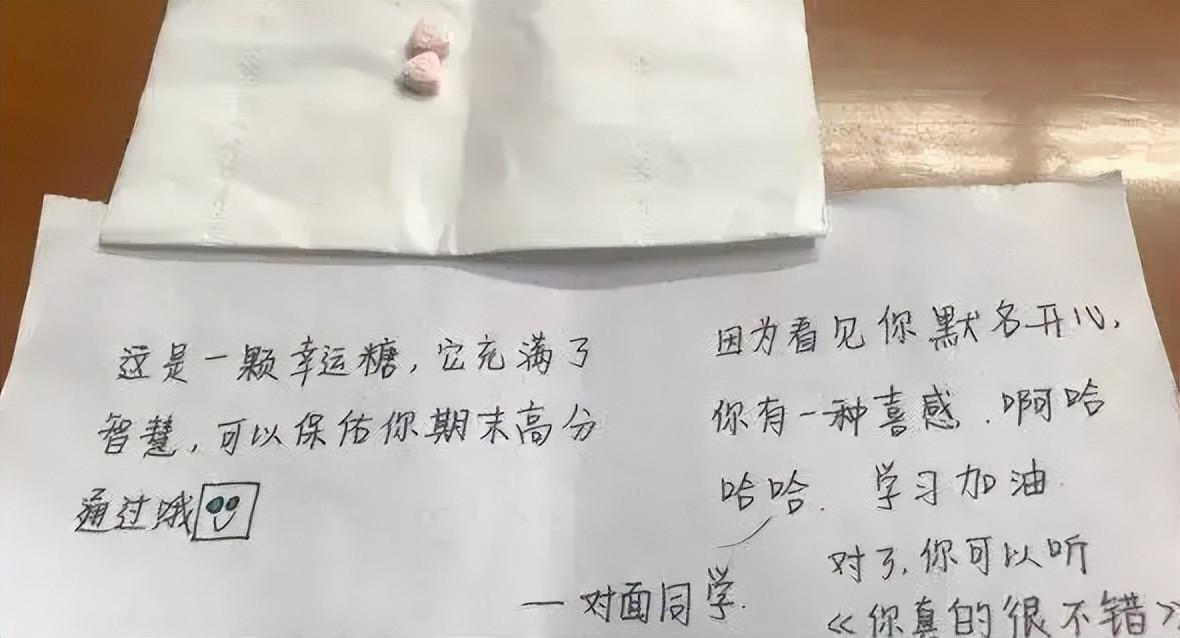 这是一颗幸运糖，它充满了
智慧，可以保佑你期末高分
通过哦
因为看见你默名开心，
你有一种喜感．啊哈
哈哈．学习加油．
对了，你可以听
《你真的很不错》
—对面同学．